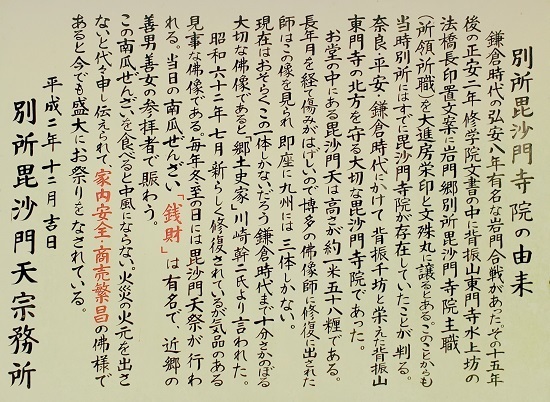 別所毘沙門寺院の由来
鎌倉時代の弘安八年有名な岩門合戦があった。その十五年
後の正安二年修学院文書の中に背振山東門寺水上坊の
法橋長印置文案に岩門郷別所毘沙門寺院主職
(所領所職)を大進房栄印と文殊丸に譲るとある。このことからも
当時別所にはすでに毘沙門寺院が存在していたことが判る。
奈良・平安・鎌倉時代にかけて背振千坊と栄えた背振山
東門寺の北方を守る大切な毘沙門寺院であった。
お堂の中にある毘沙門天は高さが約一米五十八糎である。
長年月を経て傷みがはげしいので博多の佛像師に修復に出された
師はこの像を見られ即座に九州には三体しかない。
現在はおそらくこの一体しかないだろう鎌倉時代まで十分さかのぼる
大切な佛像であると郷土史家川崎幹二氏より言われた。
昭和六十二年七月新らしく修復されているが気品のある
見事な佛像である。毎年冬至の日には毘沙門天祭が行わ
れる。当日の南瓜ぜんざい「銭財」は有名で、近郷の
善男善女の参拝者で賑わう。
この南瓜ぜんざいを食べると中風にならない。火災の火元を出さ
ないと代々申し伝えられて、家内安全・商売繁昌の佛様で
あると今でも盛大にお祭りをなされている。
平成二年十二月吉日
別所毘沙門天宗務所